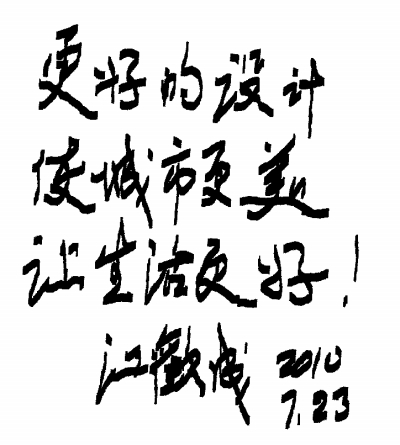 更好的设计
使城市更美
让生活更好！
江歡成 2010
7.23